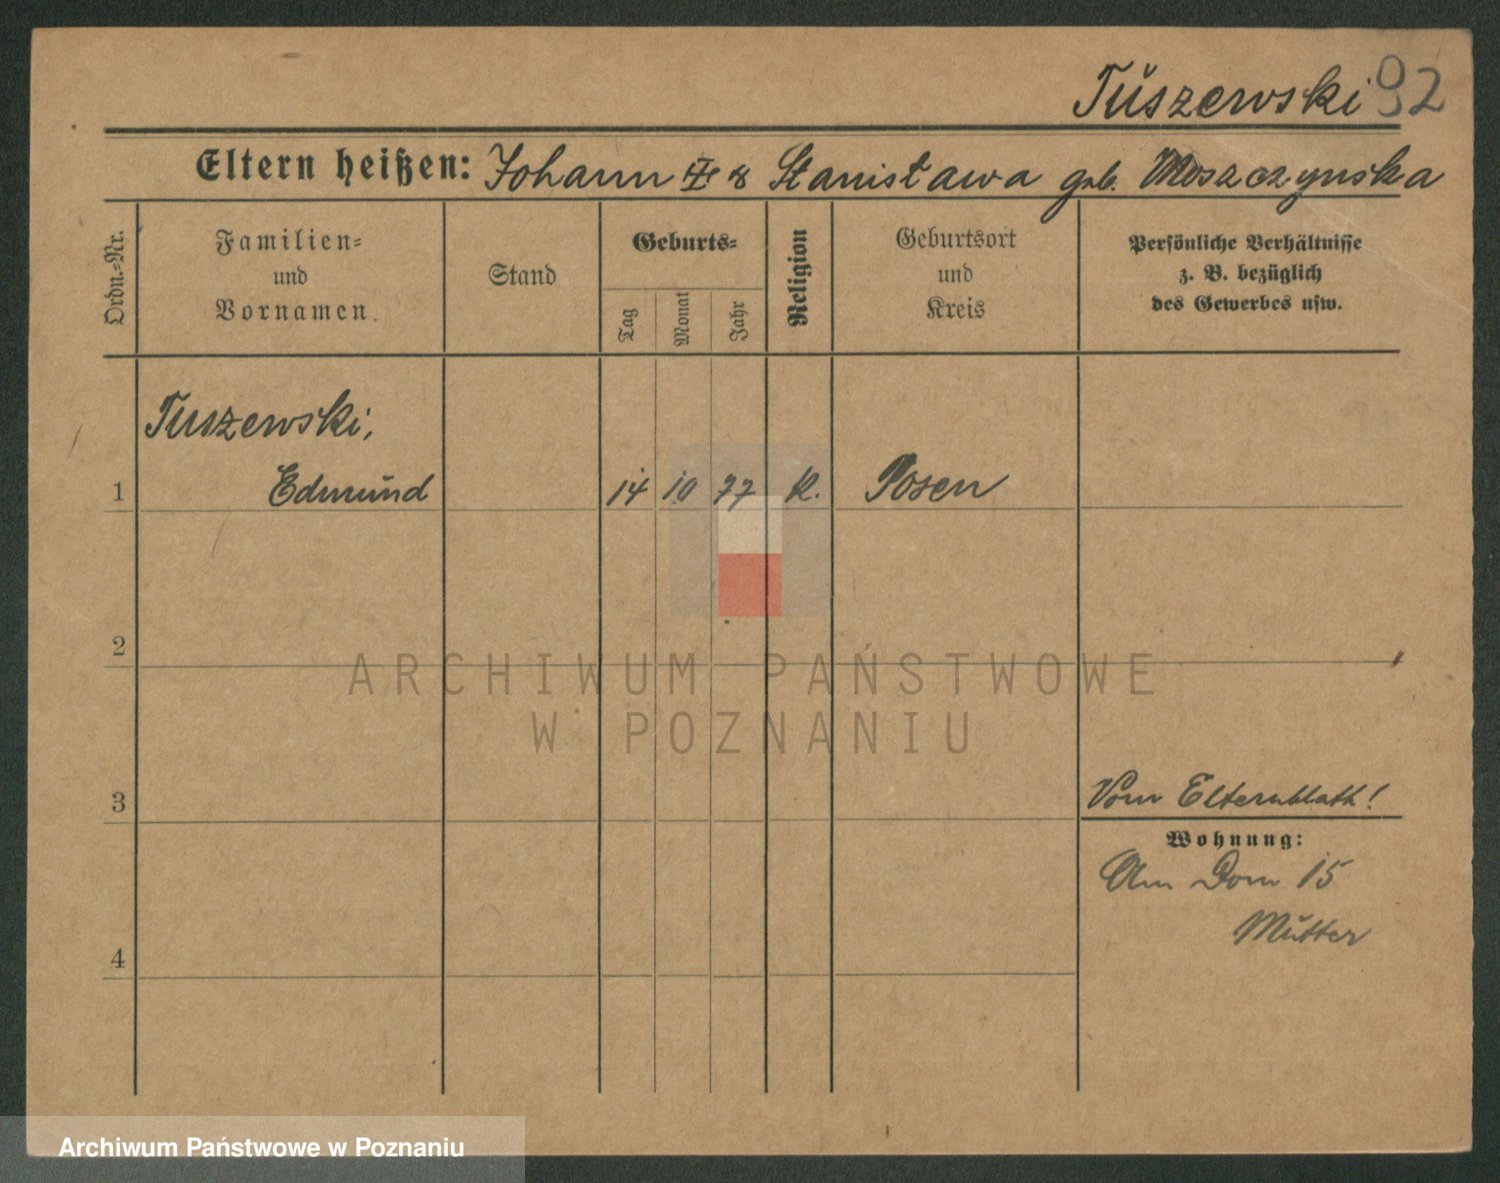 Tuszewski 92
Eltern heißen: Johann & Stanisława geb. Moszczynska
Ordn.-Nr.
Familien-
und
Vornamen.
Stand
Geburts-
Tag
Monat
Jahr
Religion
Geburtsort
und
Kreis
Persönliche Verhältnisse
z. B. bezüglich
des Gewerbes usw.
Tuszewski,
1 Edmund 14 10 77 K. Posen
2
ARCHIWUM PAŃSTWOWE
W POZNANIU
3 Vom Elternblatt!
Wohnung:
Am Dom 15
Mutter
4
Archiwum Państwowe w Poznaniu